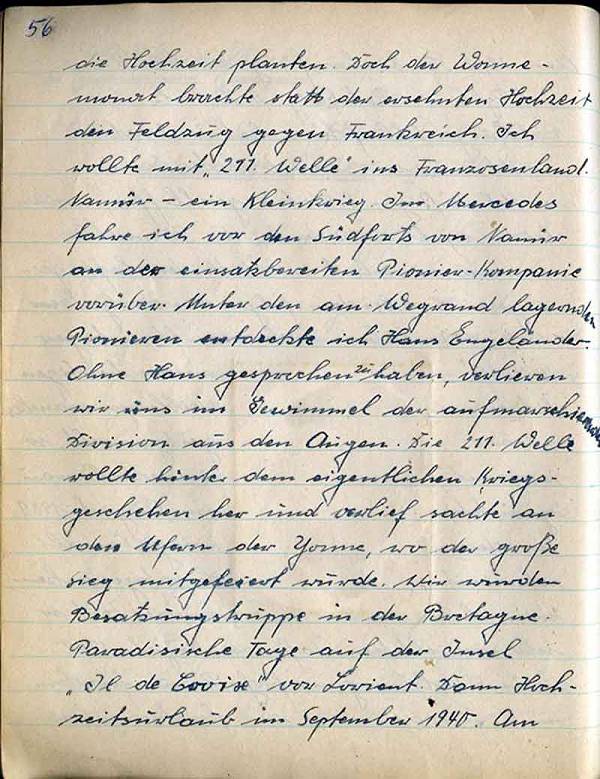 56
die Hochzeit planten. Doch der Wonne-
monat brachte statt der ersehnten Hochzeit
den Feldzug gegen Frankreich. Ich
rollte mit "211. Welle" ins Franzosenland.
Namür - ein Kleinkrieg. Im Mercedes
fahre ich vor den Südforts von Namür
an der einsatzbereiten Pionier-Kompanie
vorüber. Unter den am Wegrand lagernden
Pionieren entdeckte ich Hans Engeländer.
Ohne Hans gesprochen zu haben, verlieren
wir uns im Gewimmel der aufmarschierenden
Division aus den Augen. Die 211. Welle
rollte hinter dem eigentlichen Kriegs-
geschehen her und verlief sachte an
den Ufern der Yonne, wo der große
Sieg mitgefeiert wurde. Wir wurden
Besatzungstruppe in der Bretagne.
Paradisische Tage auf der Insel
"Il de Croix" vor Lorient. Dann Hoch-
zeitsurlaub im September 1940. Am